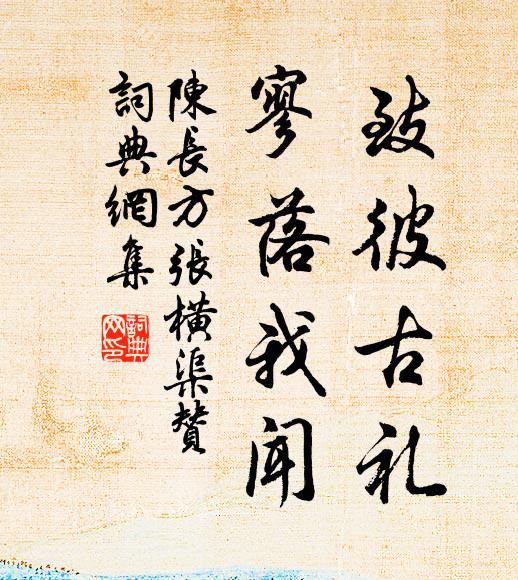 致彼古礼
寥落我聞
陳長方張橫渠贊
詞典網集
詞典
网印